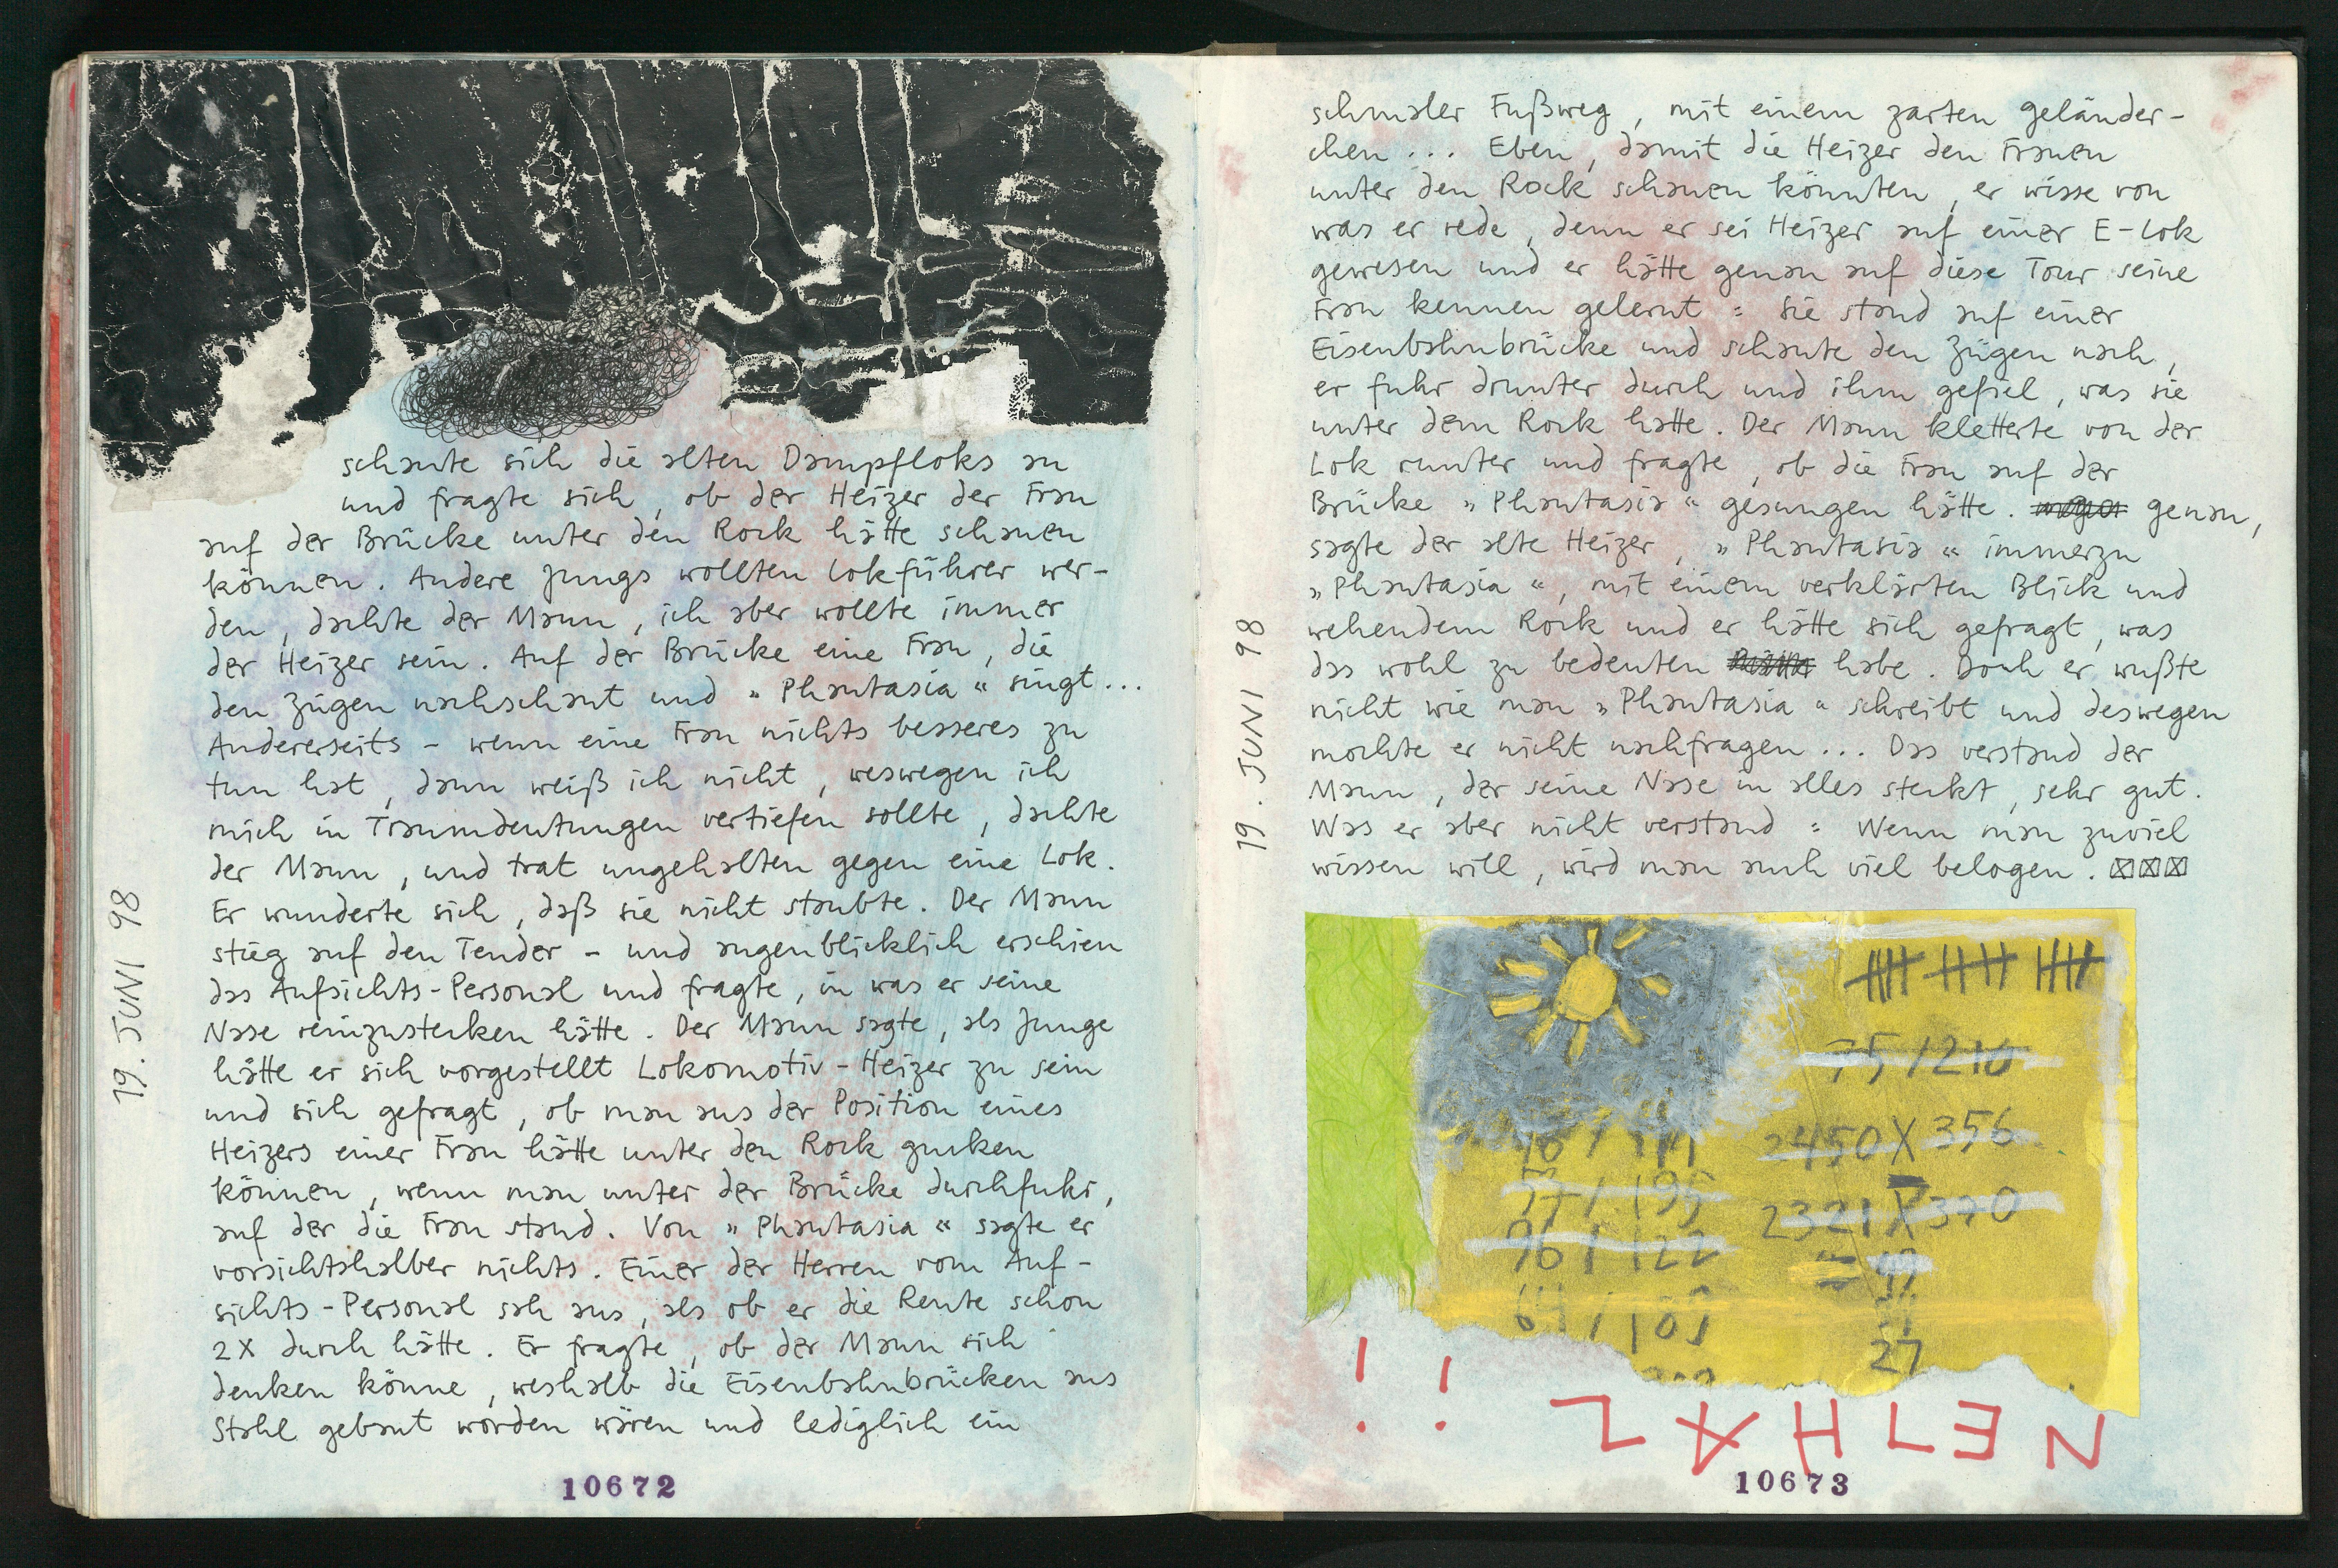 schaute sich die alten Dampfloks an
und fragte sich, ob der Heizer der Frau
auf der Brücke unter den Rock hätte schauen
können. Andere Jungs wollten Lokführer wer-
den, dachte der Mann, ich aber wollte immer
der Heizer sein. Auf der Brücke eine Frau, die
den Zügen nachschaut und „Phantasia“ singt...
Andererseits – wenn eine Frau nichts besseres zu
tun hat, dann weiß ich nicht, weswegen ich
mich in Traumdeutungen vertiefen sollte, dachte
der Mann, und trat ungehalten gegen eine Lok.
Er wunderte sich, daß sie nicht staubte. Der Mann
stieg auf den Tender – und augenblicklich erschien
das Aufsichts-Personal und fragte, in was er seine
Nase reinzustecken hätte. Der Mann sagte, als Junge
hätte er sich vorgestellt Lokomotiv-Heizer zu sein
und sich gefragt, ob man aus der Position eines
Heizers einer Frau hätte unter den Rock gucken
können, wenn man unter der Brücke durchfuhr,
auf der die Frau stand. Von „Phantasia“ sagte er
vorsichtshalber nichts. Einer der Herren vom Auf-
sichts-Personal sah aus, als ob er die Rente schon
2X durch hätte. Er fragte, ob der Mann sich
denken könne, weshalb die Eisenbahnbrücken aus
Stahl gebaut worden wären und lediglich ein
19. JUNI 98
10672
schmaler Fußweg, mit einem zarten geländer-
chen... Eben, damit die Heizer den Frauen
unter den Rock schauen könnten, er wisse von
was er rede, denn er sei Heizer auf einer E-Lok
gewesen und er hätte genau auf diese Tour seine
Frau kennen gelernt: sie stand auf einer
Eisenbahnbrücke und schaute den Zügen nach,
er fuhr drunter durch und ihm gefiel, was sie
unter dem Rock hatte. Der Mann kletterte von der
Lok runter und fragte, ob die Frau auf der
Brücke „Phantasia“ gesungen hätte. genau,
sagte der alte Heizer, „Phantasia“ immerzu
„Phantasia“, mit einem verklärten Blick und
wehendem Rock und er hätte sich gefragt, was
das wohl zu bedeuten habe. Doch er wußte
nicht wie man „Phantasia“ schreibt und deswegen
mochte er nicht nachfragen... Das verstand der
Mann, der seine Nase in alles steckt, sehr gut.
Was er aber nicht verstand: Wenn man zuviel
wissen will, wird man auch viel belogen. ☒☒☒
19. JUNI 98
75/210
2450X356
57/195
2321X370
96/122
27
10673